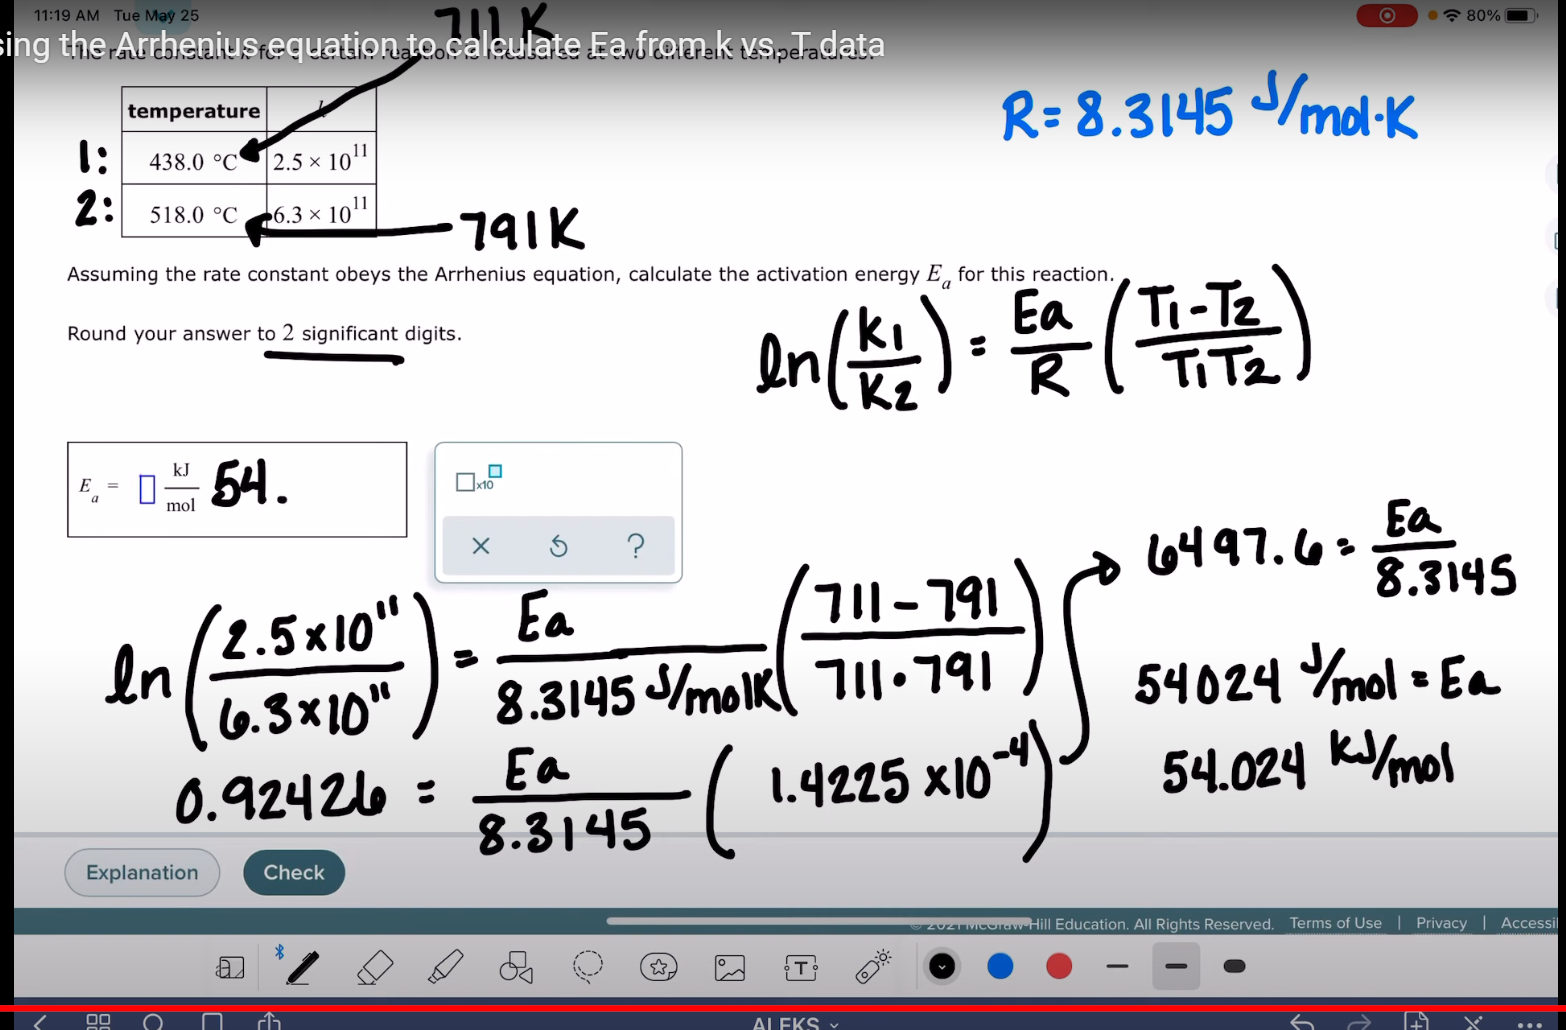 11:19 AM Tue May 25
80%
711 K
sing the Arrhenius equation to calculate Ea from k vs. T data
The rate constant k for a certain reaction is measured at two different temperatures:
R = 8.3145 J/mol·K
temperature k
1: 438.0 °C 2.5 × 10¹¹
2: 518.0 °C 6.3 × 10¹¹
791K
Assuming the rate constant obeys the Arrhenius equation, calculate the activation energy Eₐ for this reaction.
Round your answer to 2 significant digits.
ln(K1/K2) = Ea/R (T1-T2/T1T2)
Eₐ = kJ/mol 54.
x10
?
6497.6 = Ea/8.3145
ln(2.5x10¹¹/6.3x10¹¹) = Ea/8.3145 J/molK (711-791/711·791)
54024 J/mol = Ea
0.92426 = Ea/8.3145 (1.4225 x10⁻⁴)
54.024 KJ/mol
Explanation
Check
© 2021 McGraw-Hill Education. All Rights Reserved. Terms of Use | Privacy | Accessi
a
T
ALEKS